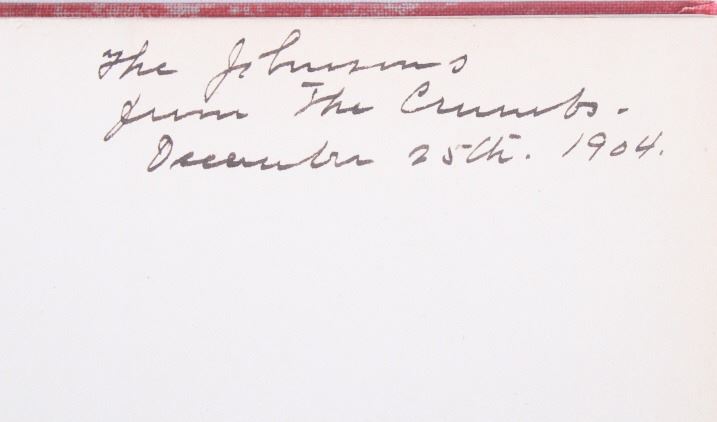 The Johnsons
from The Crumbs.
December 25th. 1904.